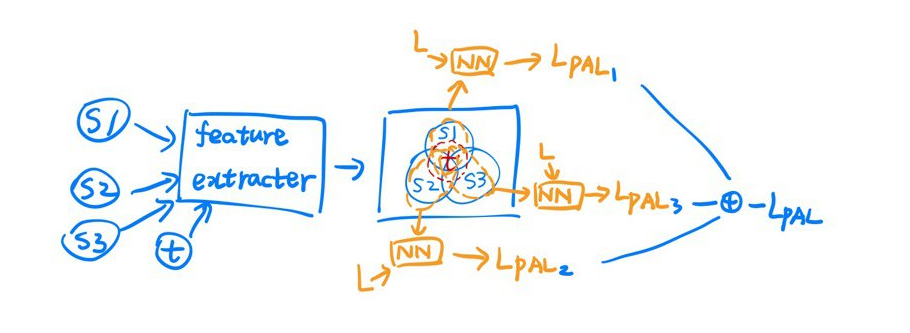 S1
S2
S3
t
feature
extracter
S1
S2
S3
t
L
NN
LPAL1
L
NN
LPAL3
L
NN
LPAL2
LPAL